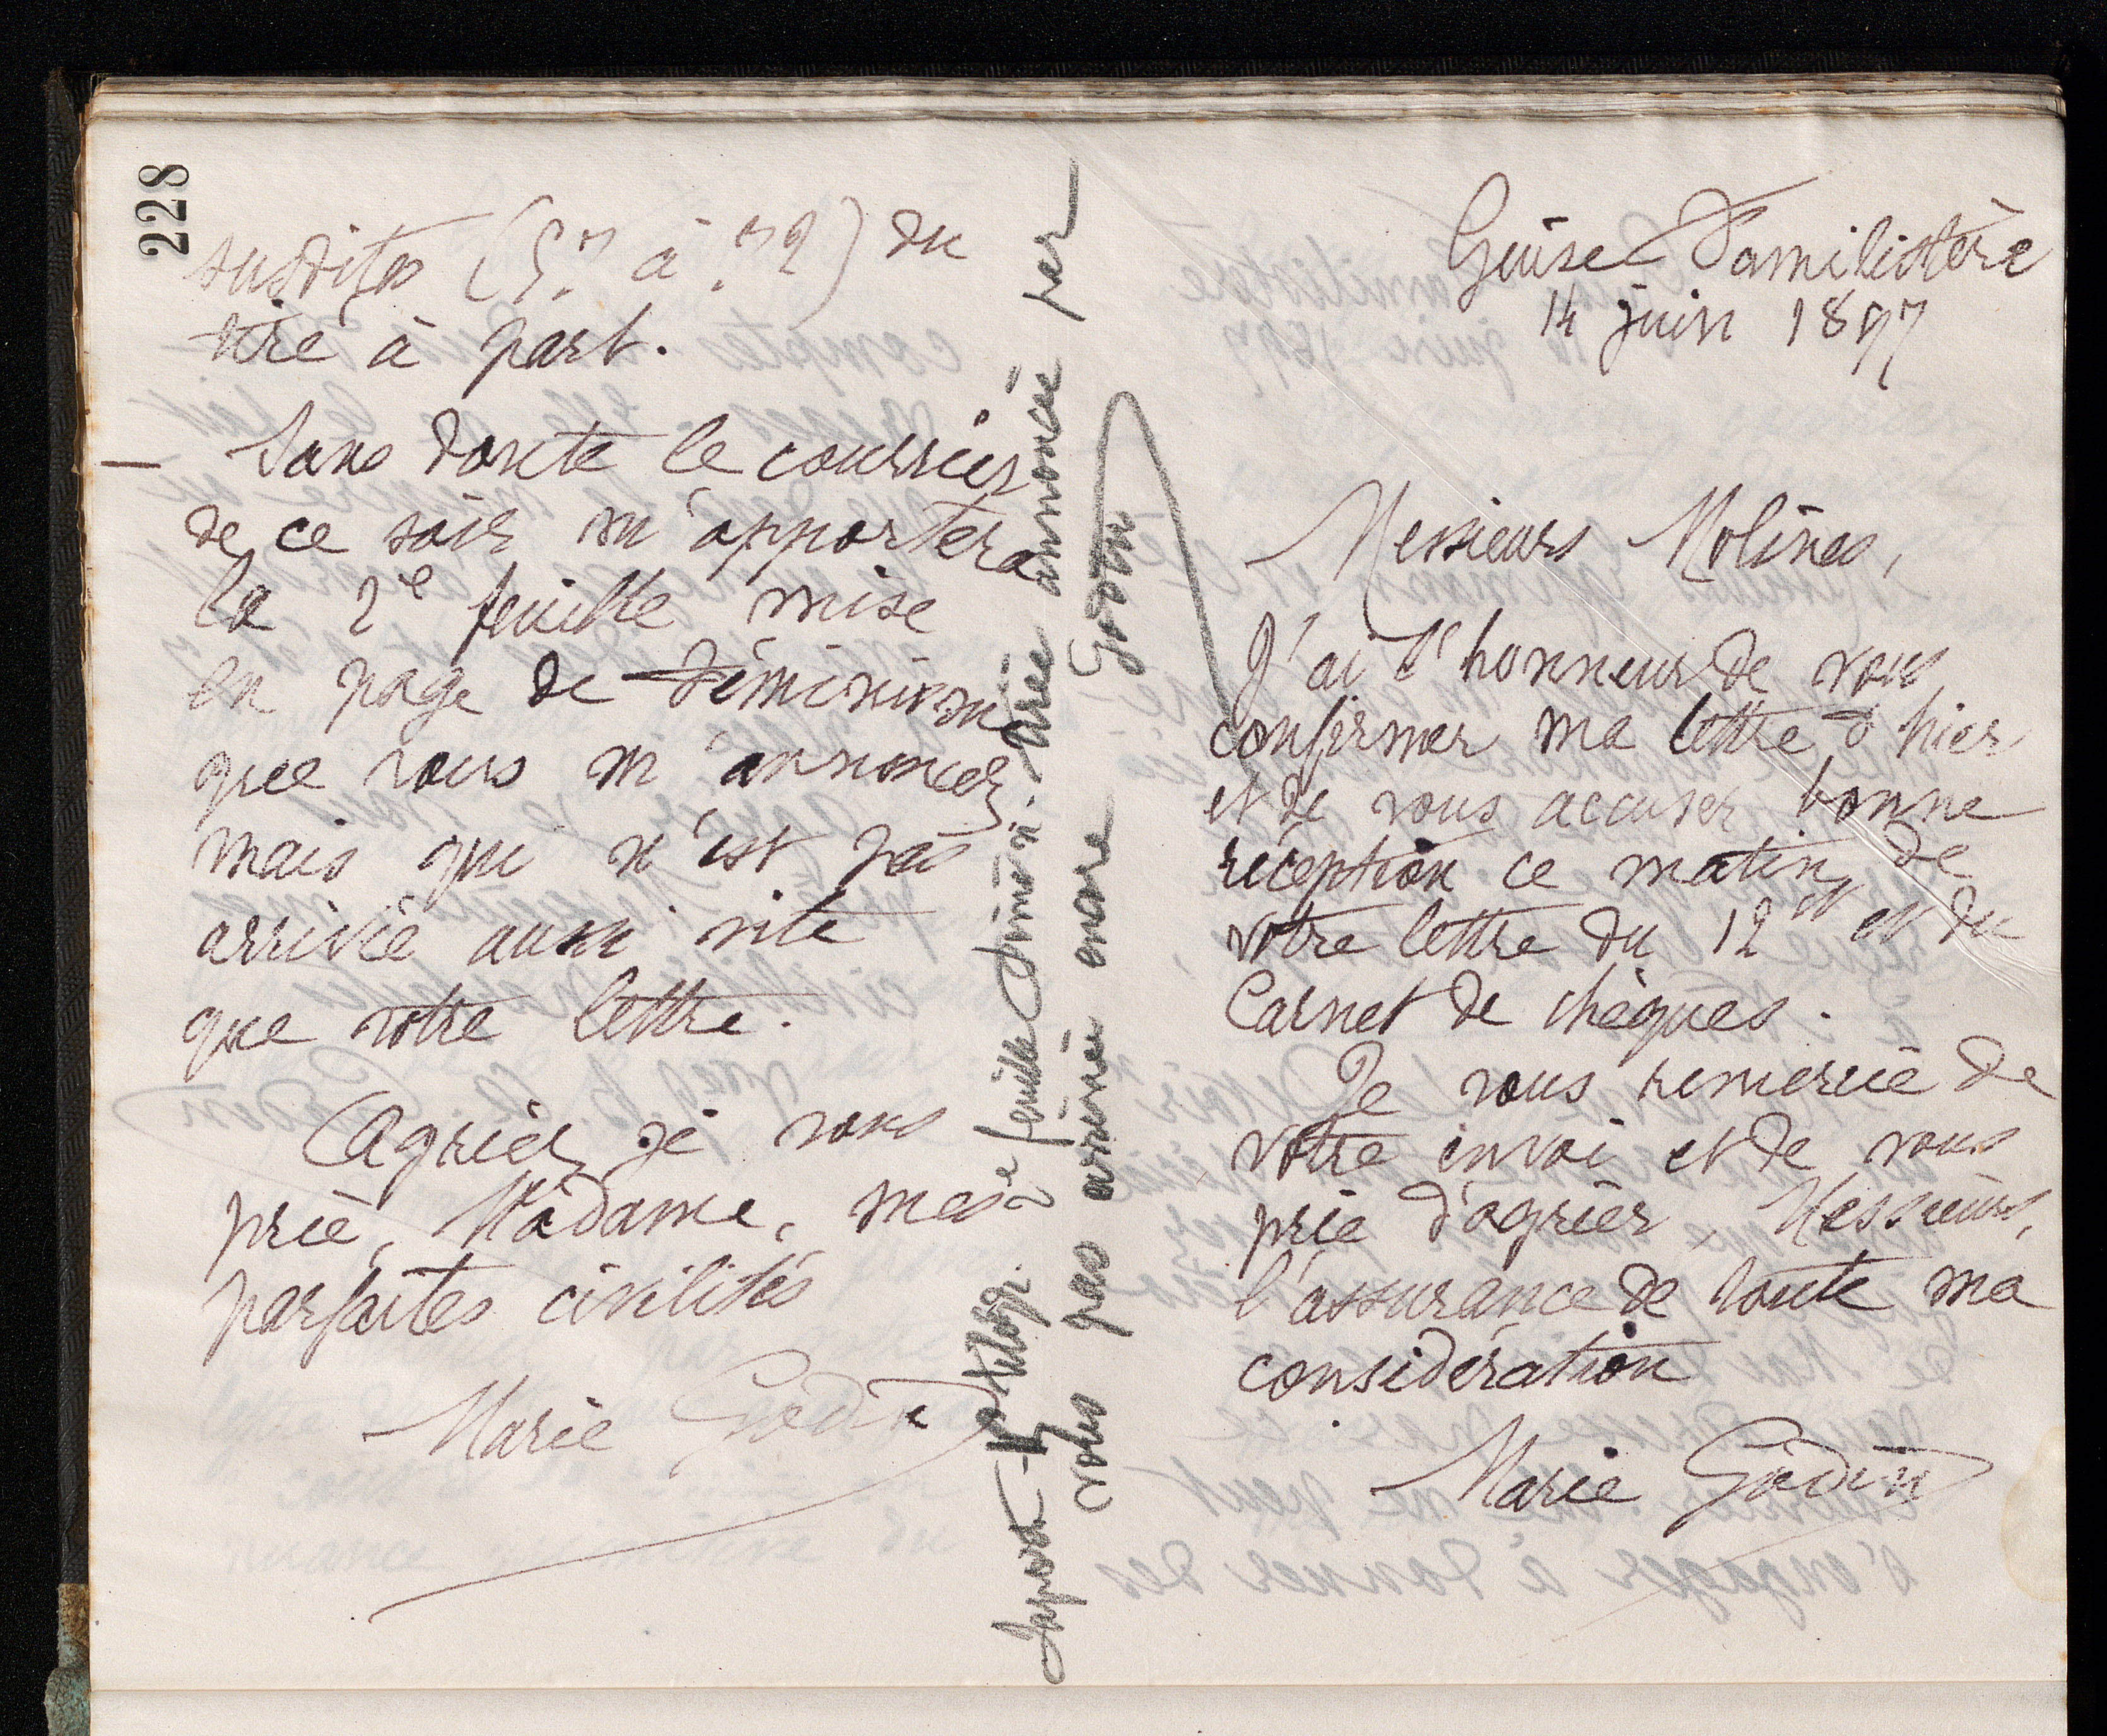 228
susdites (57 à 72) du
tiré à part.
— Sans doute le courrier
de ce soir m'apportera
la 2e feuille mise
en page de Féminisme
que vous m'annoncez
mais qui n'est pas
arrivée aussi vite
que votre lettre.
Agréez, je vous
prie, Madame, mes
parfaites civilités
Marie Godin
2e feuille tirée annoncée par
vous pas arrivée encore Godin
Guise Familistère
14 juin 1897
Messieurs Molines,
J'ai l'honneur de vous
confirmer ma lettre d'hier
et de vous accuser bonne
réception ce matin de
votre lettre du 12 et et du
Carnet de chèques.
Je vous remercie de
votre envoi et de vous
prie d'agréer, Messieurs,
l'assurance de toute ma
considération
Marie Godin